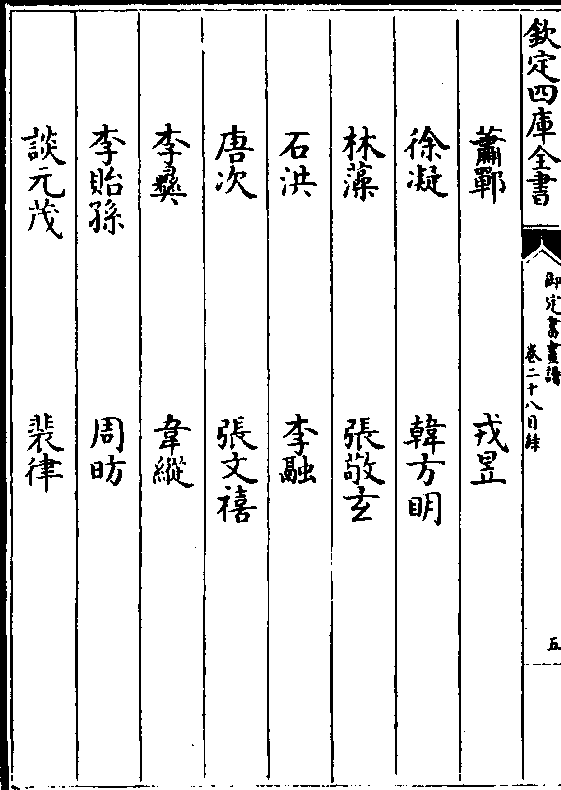 欽定四庫全書
御定書畫譜
卷二十八目錄
五
蕭鄲 戎昱
徐凝 韓方明
林藻 張敬玄
石洪 李融
唐次 張文禧
李彞 韋縱
李貽孫 周昉
談元茂 裴律